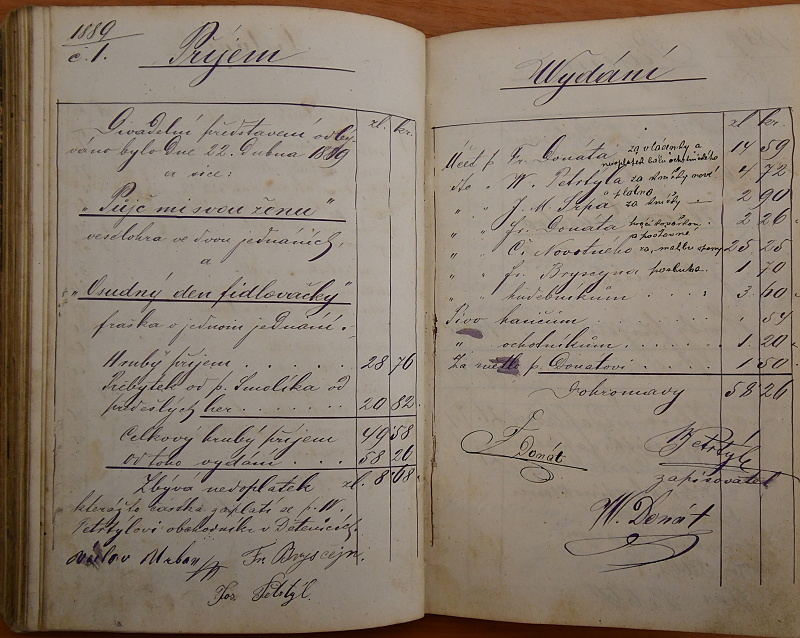 1889
č. 1.
Příjem
zl. kr.
Divadelní představení odbý-
váno bylo Dne 22. Dubna 1889
a sice:
„Půjč mi svou ženu“
veselohra ve dvou jednáních,
a
„Osudný den fidlovačky“
fraška v jednom jednání.
Hrubý příjem . . . 28 76
Přebytek od p. Smolíka od
předešlých her . . . . . . 20 82
Celkový hrubý příjem 49 58
od toho vydání . . . 58 26
Zbývá nedoplatek zl. 8 68
kterážto částka zaplatí se p. W.
Petrtýlovi obchodníku v Dětenicích.
Urban Fr. Bryscejn.
Jos. Petrtýl.
Wydání
zl kr.
Účet p. Fr. Donáta za vlásenky a 14 59
nedoplatek balu ochotnického
dto „ W. Petrtýla za knížky nové 4 72
a plátno
„ „ J. M. Srpa za knížky 2 90
„ „ Fr. Donáta 2 26
„ „ Č. Novotného za malbu 25 25
„ „ Fr. Bryscejna 1 70
„ „ hudebníkům . . . 3 60
Pivo hasičům . . . . . . 54
„ ochotníkům . . . . 1 20
Za p. Donátovi 1 50
Dohromady 58 26
F. Donát
Petrtýl
zapisovatel
W. Donát